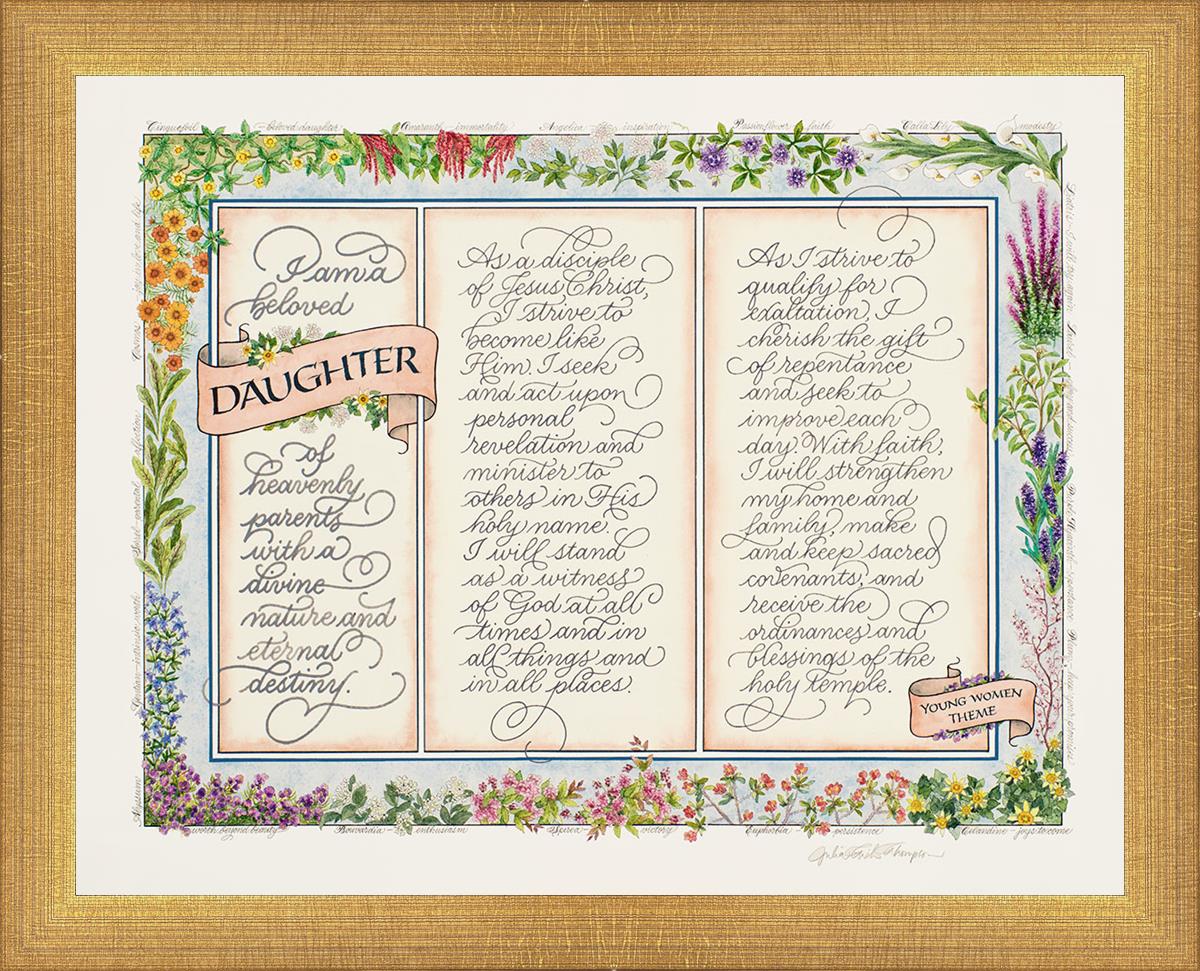 Cinquefoil – beloved daughter
Amaranth – immortality
Angelica – inspiration
Passionflower – faith
Calla Lily – modesty
I am a
beloved
DAUGHTER
of
heavenly
parents
with a
divine
nature and
eternal
destiny.
As a disciple
of Jesus Christ,
I strive to
become like
Him. I seek
and act upon
personal
revelation and
minister to
others in His
holy name.
I will stand
as a witness
of God at all
times and in
all things and
in all places.
As I strive to
qualify for
exaltation, I
cherish the gift
of repentance
and seek to
improve each
day. With faith,
I will strengthen
my home and
family, make
and keep sacred
covenants, and
receive the
ordinances and
blessings of the
holy temple.
YOUNG WOMEN
THEME
Alyssum – worth beyond beauty
Bouvardia – enthusiasm
Spirea – victory
Euphorbia – persistence
Celandine – joys to come